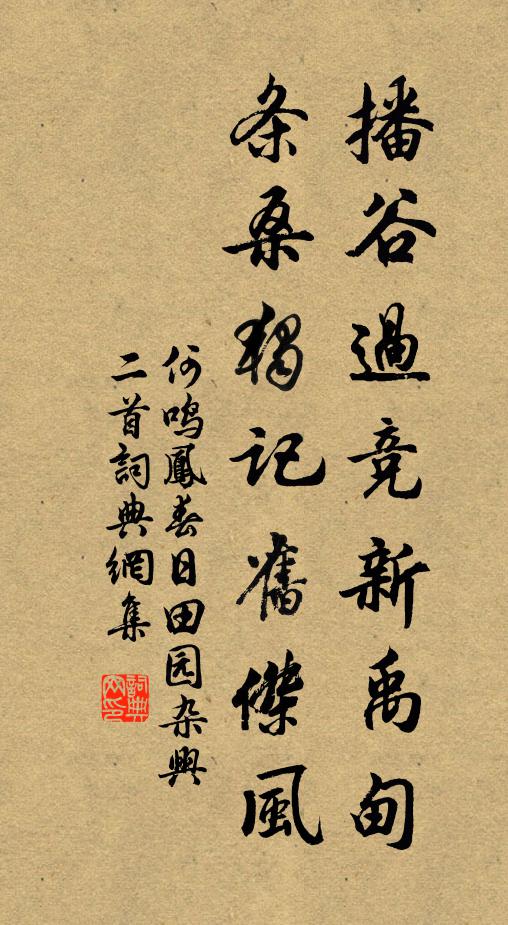 播谷過竞新禹甸
条桑猶记舊傑風
何鸣鳳春日田园杂興
二首詞典網集
詞典